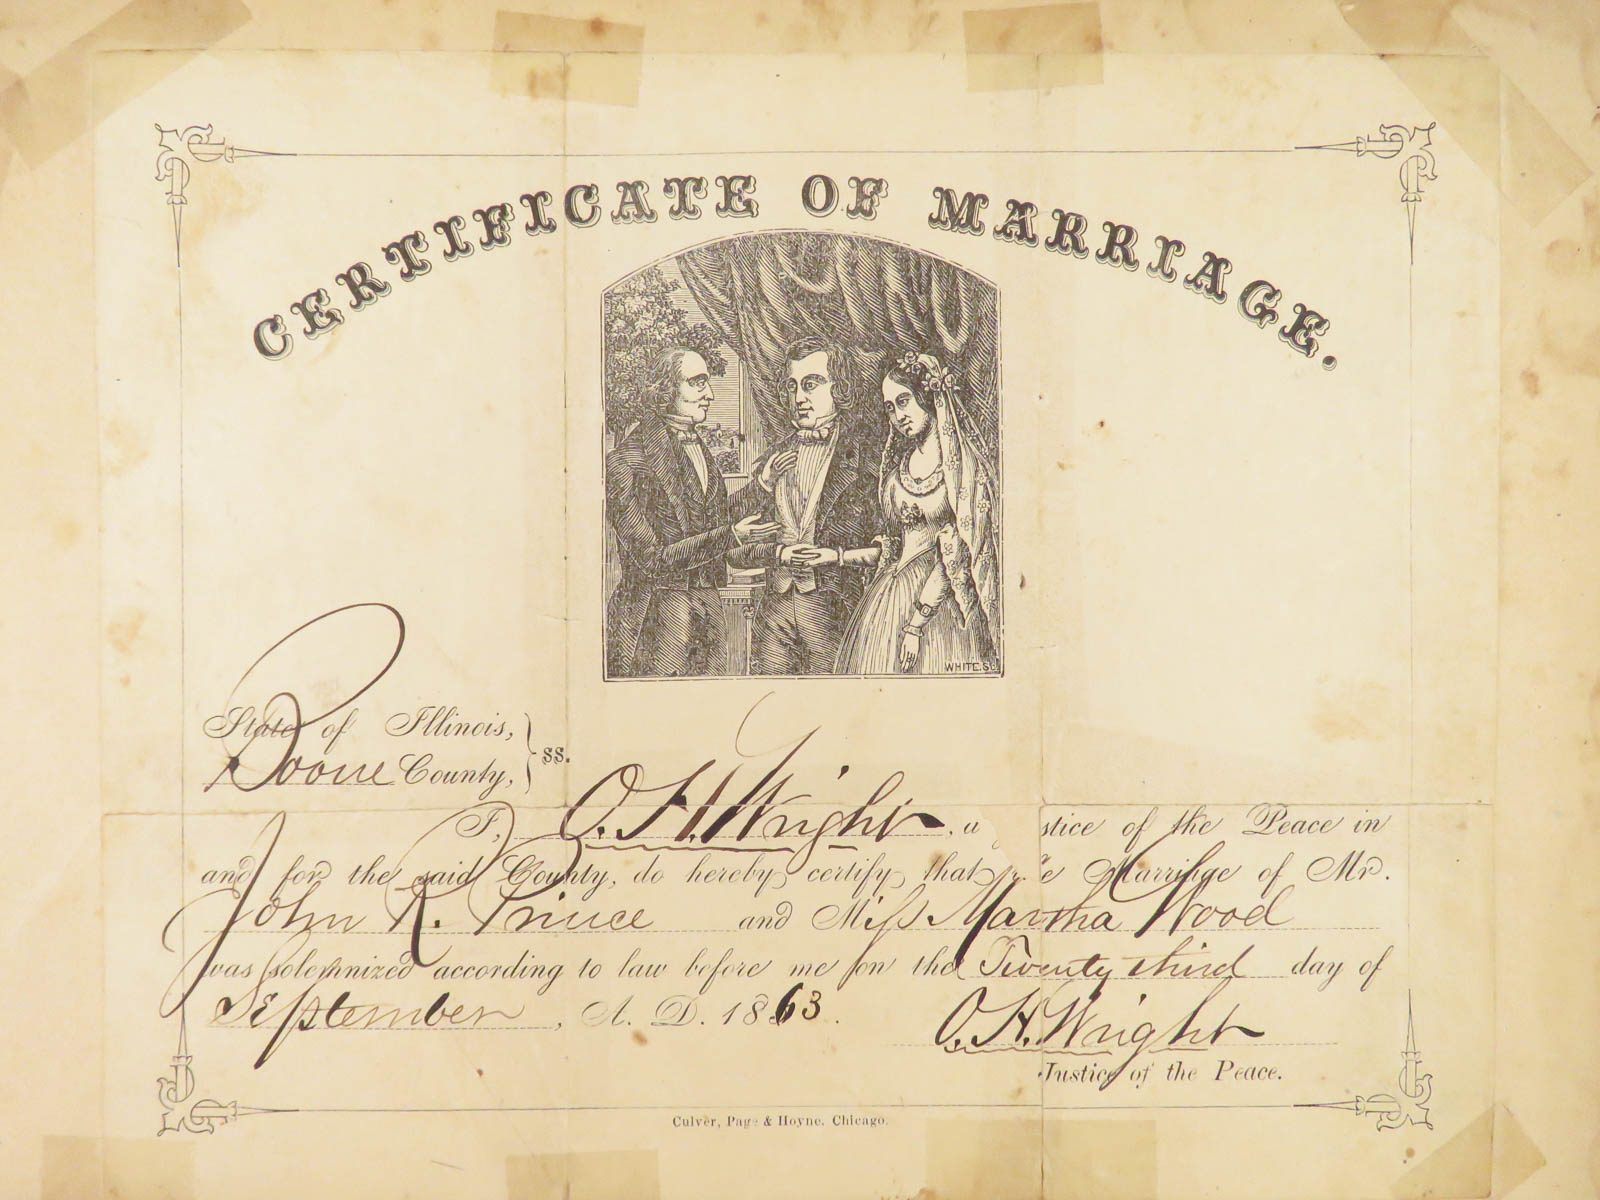 CERTIFICATE OF MARRIAGE.
WHITE. Sc
State of Illinois,
Boone County, } ss.
I, O. H. Wright, a stice of the Peace in
and for the said County, do hereby certify that e Marriage of Mr.
John R. Prince and Miss Martha Wood
was solemnized according to law before me on the Twenty third day of
September, A. D. 1863.
O. H. Wright
Justice of the Peace.
Culver, Page & Hoyne, Chicago.